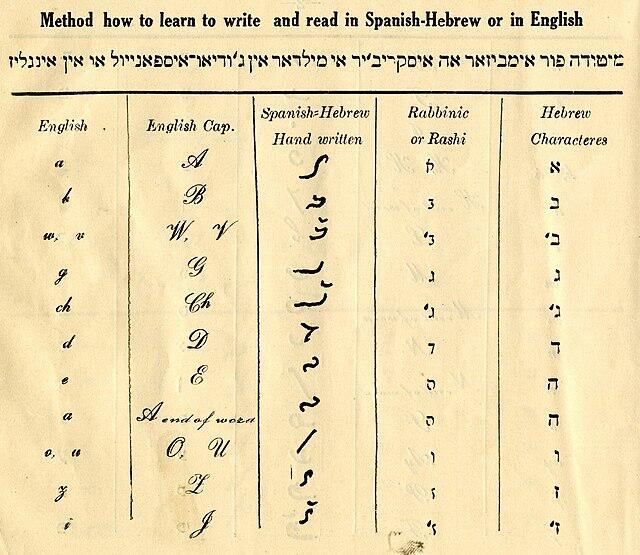 Method how to learn to write and read in Spanish-Hebrew or in English
מיטודה פור אימביזאר אה איסקריב'יר אי מילדאר אין ג'ודיאו־איספאנייול או אין אינגליז
English. English Cap. Spanish=Hebrew Hand written Rabbinic or Rashi Hebrew Characteres
a A א א
b B ב ב
w, v W, V ב' ב'
g G ג ג
ch Ch ג' ג'
d D ד ד
e E ה ה
a A end of word ה ה
o, u O, U ו ו
z Z ז ז
j J ז' ז'